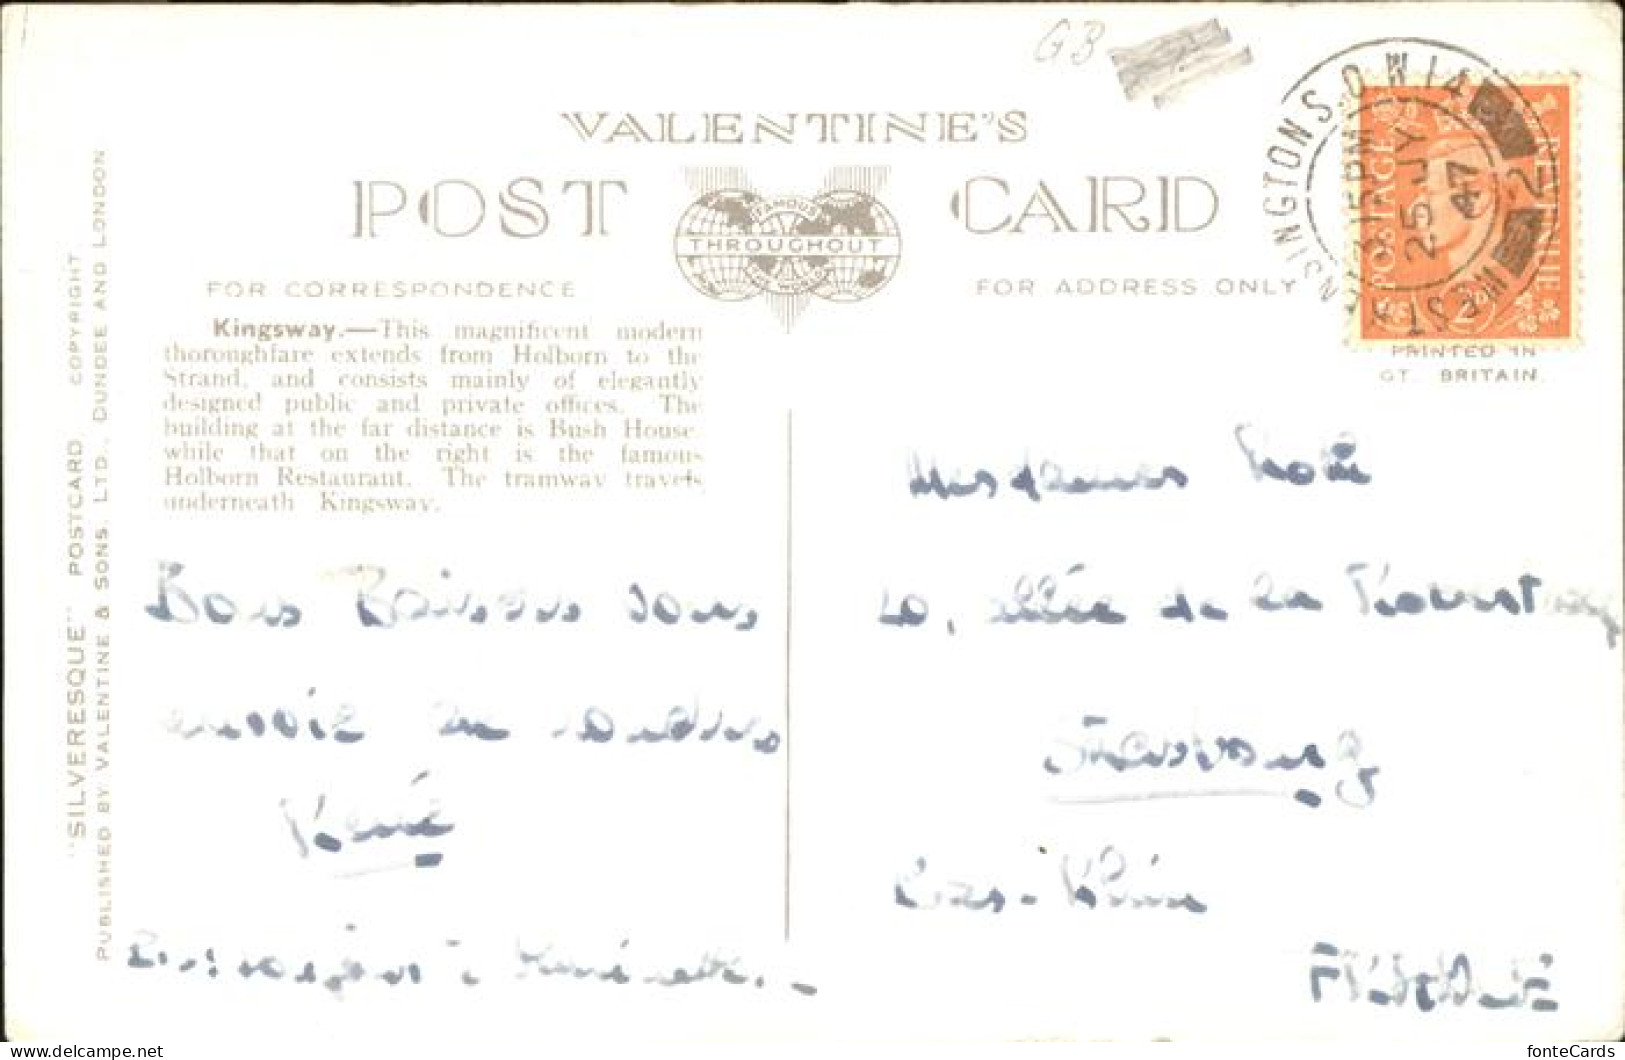 G B
VALENTINE'S
POST CARD
FAMOUS
THROUGHOUT
THE WORLD
FOR CORRESPONDENCE
FOR ADDRESS ONLY
WEST KENSINGTON S.O. W 14
3 15 PM
25 JY
47
2
POSTAGE
REVENUE
PRINTED IN
GT. BRITAIN.
Kingsway.—This magnificent modern
thoroughfare extends from Holborn to the
Strand, and consists mainly of elegantly
designed public and private offices. The
building at the far distance is Bush House,
while that on the right is the famous
Holborn Restaurant. The tramway travels
underneath Kingsway.
"SILVERESQUE" POSTCARD. COPYRIGHT
PUBLISHED BY VALENTINE & SONS, LTD., DUNDEE AND LONDON
Bons Baisers
de Londres
René
Mesdames
10, allée de la
Strasbourg
Bas-Rhin
FRANCE
fonteCards